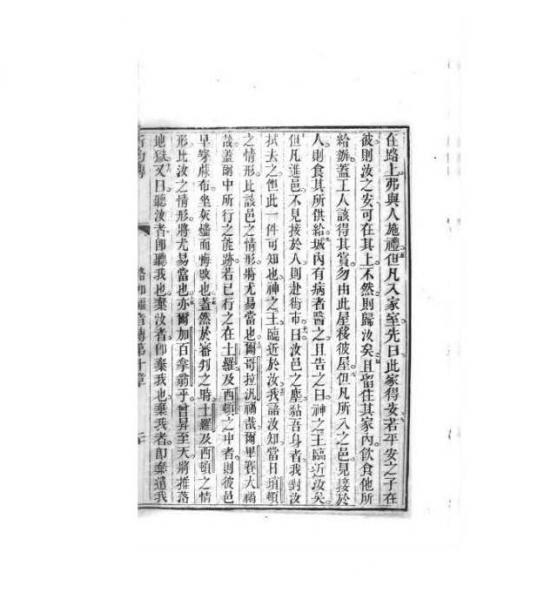 在路上弗與人施禮但凡入家室先曰此家得安若平安之子在
彼則汝之安可在其上不然則歸汝矣且留住其家內飲食他所
給辦蓋工人該得其賞勿由此屋移彼屋但凡所入之邑見接於
人則食其所供給城內有病者醫之且告之曰神之王臨近汝矣
但凡進邑不見接於人則赴街市曰汝邑之塵黏吾身者我對汝
拭去之但此一件可知也神之王臨近於汝我語汝知當日瑣頓
之情形比該邑之情形將尤易當也爾哥拉汛禍哉爾畢賽大禍
哉蓋爾中所行之能跡若已行之在土羅及西頓之中者則彼邑
早穿麻布坐灰爐而悔改也蓋然於審判之時土羅及西頓之情
形比汝之情形將尤易當也亦爾加百拿翁于曾昇至天將推落
地獄又曰聽汝者即聽我也棄汝者即棄我也棄我者即棄遣我
路加 傳第十章